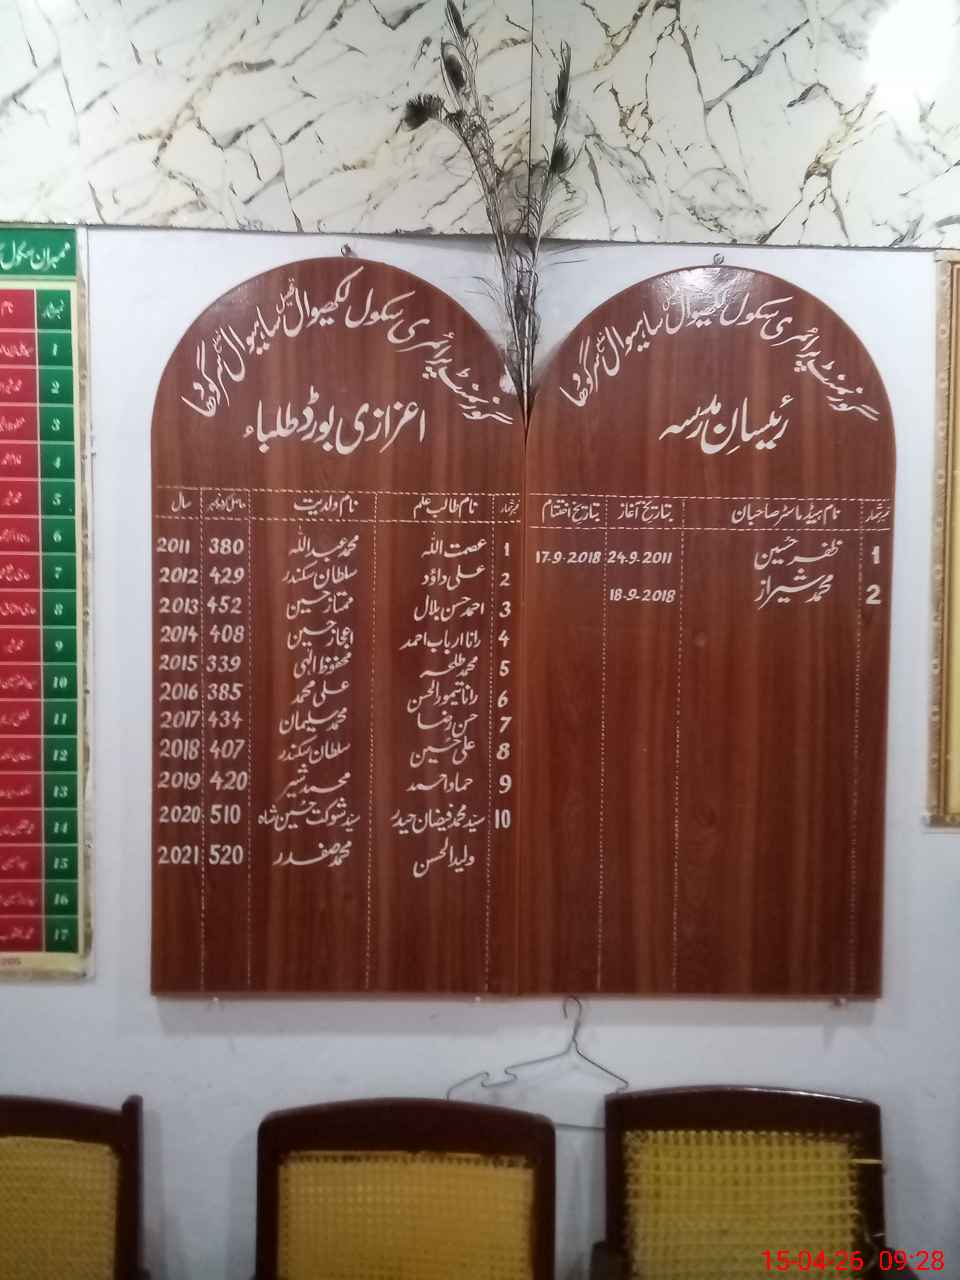 گورنمنٹ پرائمری سکول لکھیوال تحصیل ساہیوال ضلع سرگودھا
اعزازی بورڈ طلباء
نمبر شمار نام طالب علم نام ولدیت حاصل کردہ نمبر سال
1 عصمت اللہ محمد عبداللہ 380 2011
2 علی داؤد سلطان سکندر 429 2012
3 احمد حسن بلال ممتاز حسین 452 2013
4 رانا ارباب احمد اعجاز حسین 408 2014
5 محمد طلحہ محفوظ الٰہی 339 2015
6 رانا تیمور الحسن علی محمد 385 2016
7 حسن رضا محمد سلیمان 434 2017
8 علی حسین سلطان سکندر 407 2018
9 حماد احمد محمد شبیر 420 2019
10 سید محمد فیضان حیدر سید شوکت حسین شاہ 510 2020
ولید الحسن محمد صفدر 520 2021
گورنمنٹ پرائمری سکول لکھیوال تحصیل ساہیوال ضلع سرگودھا
رئیسانِ مدرسہ
نمبر شمار نام ہیڈ ماسٹر صاحبان تاریخ آغاز تاریخ اختتام
1 ظفر حسین 24-9-2011 17-9-2018
2 محمد شیراز 18-9-2018
ممبران سکول
نمبر شمار نام
1
2
3
4
5
6
7
8
9
10
11
12
13
14
15
16
17
15-04-26 09:28